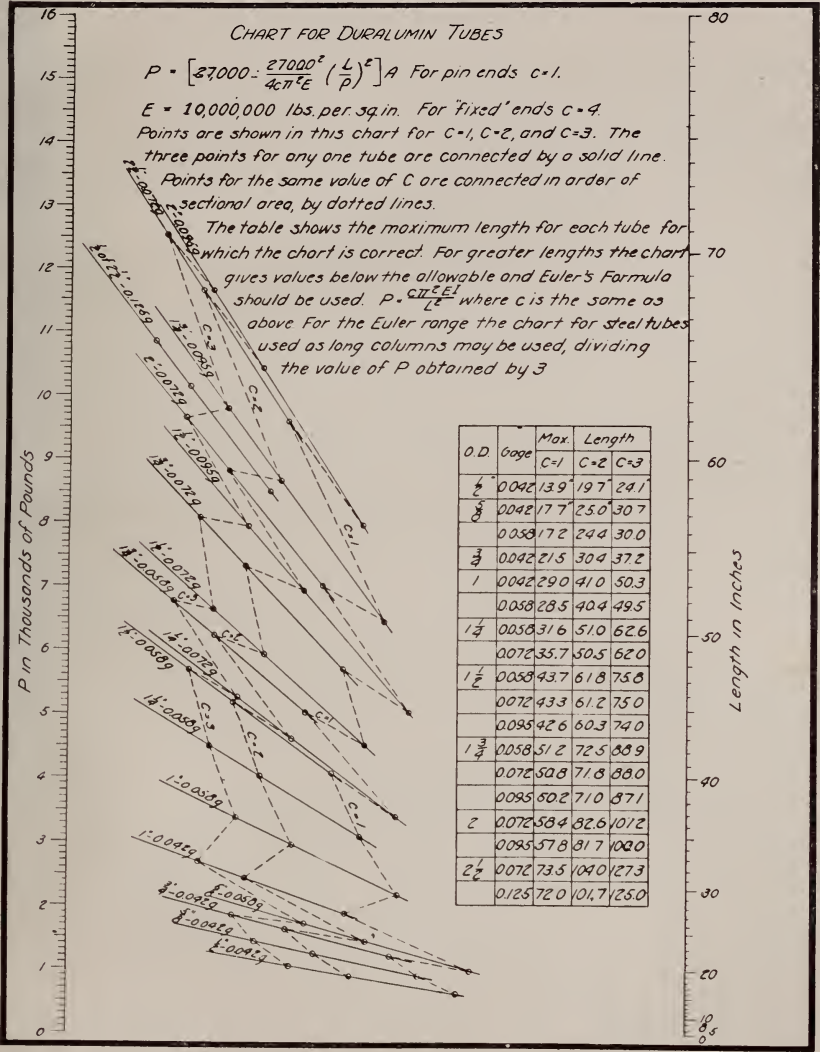 CHART FOR DURALUMIN TUBES
P = [27,000 - 27000²/4cπ²E (L/ρ)²] A For pin ends c=1.
E = 10,000,000 lbs. per. sq. in. For "fixed" ends c=4.
Points are shown in this chart for C=1, C=2, and C=3. The
three points for any one tube are connected by a solid line.
Points for the same value of C are connected in order of
sectional area, by dotted lines.
The table shows the maximum length for each tube for
which the chart is correct. For greater lengths the chart
gives values below the allowable and Euler's Formula
should be used. P = cπ²EI/L² where c is the same as
above For the Euler range the chart for steel tubes
used as long columns may be used, dividing
the value of P obtained by 3
P in Thousands of Pounds
16
15
14
13
12
11
10
9
8
7
6
5
4
3
2
1
0
2½"-0.072g
2"-0.095g
½ of 2½"-0.126g
1¾"-0.095g
2"-0.072g
1½"-0.095g
1¾"-0.072g
1½"-0.072g
1¾"-0.058g
1¼"-0.072g
1½"-0.058g
1¼"-0.058g
1"-0.058g
1"-0.042g
⅝"-0.058g
¾"-0.042g
⅝"-0.042g
½"-0.042g
C=3
C=2
C=1
C=3
C=2
C=1
C=3
C=2
C=1
O.D. Gage Max. Length
C=1 C=2 C=3
½" 0.042 13.9" 19.7" 24.1"
⅝" 0.042 17.7" 25.0" 30.7
0.058 17.2 24.4 30.0
¾ 0.042 21.5 30.4 37.2
1 0.042 29.0 41.0 50.3
0.058 28.5 40.4 49.5
1¼ 0.058 31.6 51.0 62.6
0.072 35.7 50.5 62.0
1½ 0.058 43.7 61.8 75.8
0.072 43.3 61.2 75.0
0.095 42.6 60.3 74.0
1¾ 0.058 51.2 72.5 88.9
0.072 50.8 71.8 88.0
0.095 50.2 71.0 87.1
2 0.072 58.4 82.6 101.2
0.095 57.8 81.7 100.0
2½ 0.072 73.5 104.0 127.3
0.125 72.0 101.7 125.0
80
70
60
50
40
30
20
10
5
0
Length in Inches